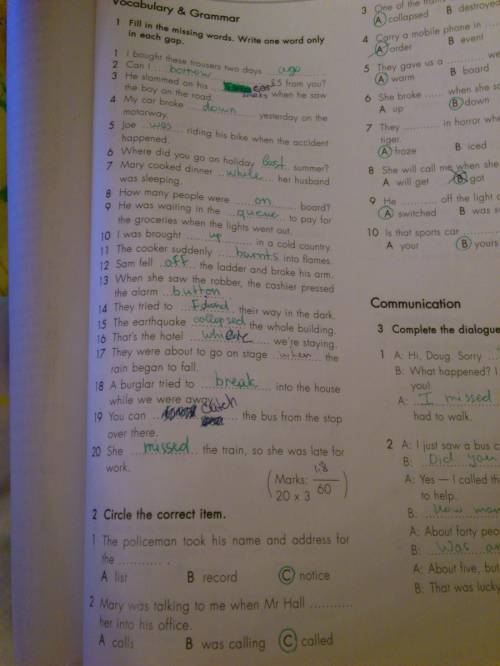 Vocabulary & Grammar
1 Fill in the missing words. Write one word only
in each gap.
1 I bought these trousers two days ago
2 Can I borrow £5 from you?
3 He slammed on his when he saw
the boy on the road.
4 My car broke down yesterday on the
motorway.
5 Joe was riding his bike when the accident
happened.
6 Where did you go on holiday last summer?
7 Mary cooked dinner while her husband
was sleeping.
8 How many people were on board?
9 He was waiting in the queue to pay for
the groceries when the lights went out.
10 I was brought up in a cold country.
11 The cooker suddenly burnts into flames.
12 Sam fell off the ladder and broke his arm.
13 When she saw the robber, the cashier pressed
the alarm button
14 They tried to their way in the dark.
15 The earthquake collepsed the whole building.
16 That's the hotel we're staying.
17 They were about to go on stage when the
rain began to fall.
18 A burglar tried to break into the house
while we were away.
19 You can catch the bus from the stop
over there.
20 She missed the train, so she was late for
work.
(Marks: 18/60)
20 x 3
2 Circle the correct item.
1 The policeman took his name and address for
the ...........
A list B record C notice
2 Mary was talking to me when Mr Hall ...........
her into his office.
A calls B was calling C called
3 One of the
A collapsed B destroye
4 Carry a mobile phone in
A order B event
5 They gave us a we
A warm B board
6 She broke when she
A up B down
7 They in horror whe
tiger.
A froze B iced
8 She will call me when she
A will get B got
9 He off the light
A switched B was s
10 Is that sports car
A your B yours
Communication
3 Complete the dialogue
1 A: Hi, Doug. Sorry
B: What happened? I
you!
A: I missed
had to walk.
2 A: I just saw a bus c
B: Did you
A: Yes — I called th
to help.
B: How man
A: About forty peo
B: Was an
A: About five, but
B: That was lucky